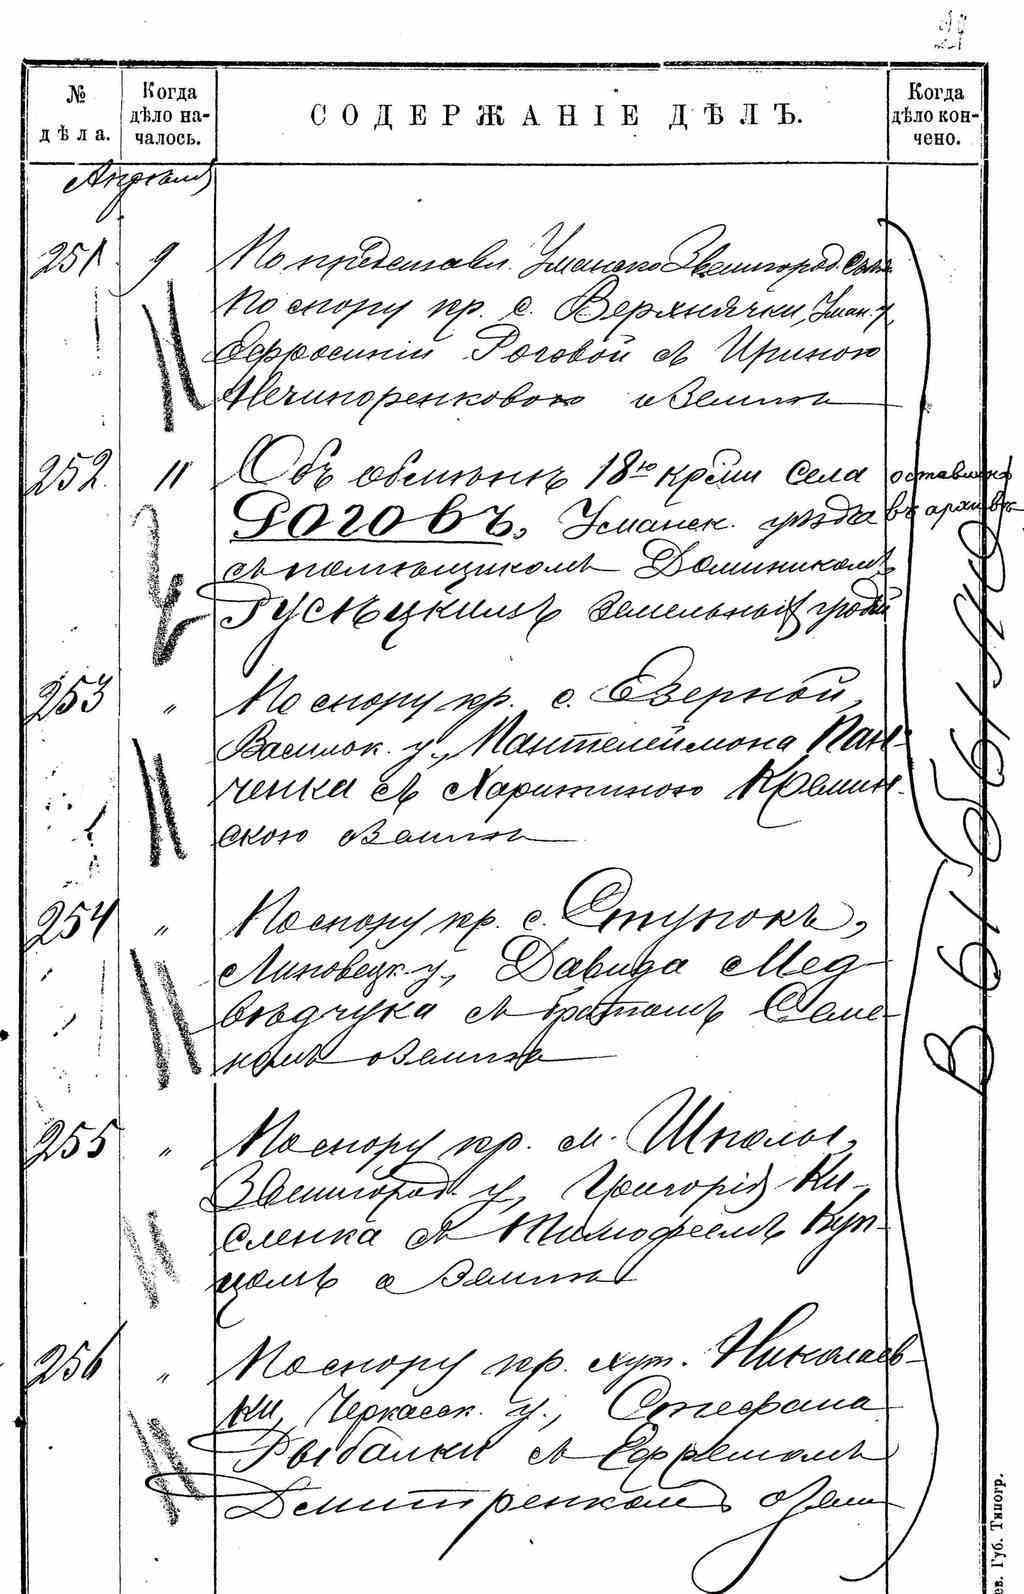 № дѣла.
Когда дѣло началось.
СОДЕРЖАНІЕ ДѢЛЪ.
Когда дѣло кончено.
Апрѣля
251 9 По представл. Уманско Звенигород. съѣз
по спору кр. с. Верхнячки, Уман. у,
Ефросиніи Роговой съ Ириною
Нечипоренковою о Землѣ
252. 11 Объ обмѣнѣ 18ю кр͠ми Села
Роговъ, Уманск. уѣзда
съ помѣщикомъ Доминикомъ
Русѣцкимъ Земельными угодій
оставлено
въ архивѣ
253 " По спору кр. с. Езерной,
Васильк. у., Пантелеймона Пан-
ченка съ Харитиною Кремин-
скою о Землѣ
254 " По спору кр. с. Ступокъ,
Липовецк. у, Давида Мед-
вѣдчука съ братомъ Семе-
номъ о Землѣ
255 " По спору кр. м. Шполы,
Звенигород. у, Григорія Ки-
сленка съ Тимофеемъ Куп-
цомъ о Землѣ
256 " По спору кр. хут. Николаев-
ки, Черкасск. у., Стефана
Рыбалки съ Ефремомъ
Дмитренкомъ о Земл
Выбыло
ев. Губ. Типогр.